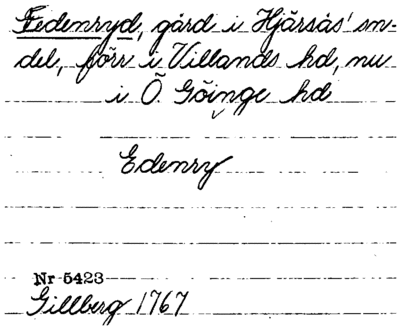 Fedenryd, gård i Hjärsås' sn-
del, förr i Villands hd, nu
i Ö. Göinge hd
Edenry
Nr 5423
Gillberg 1767